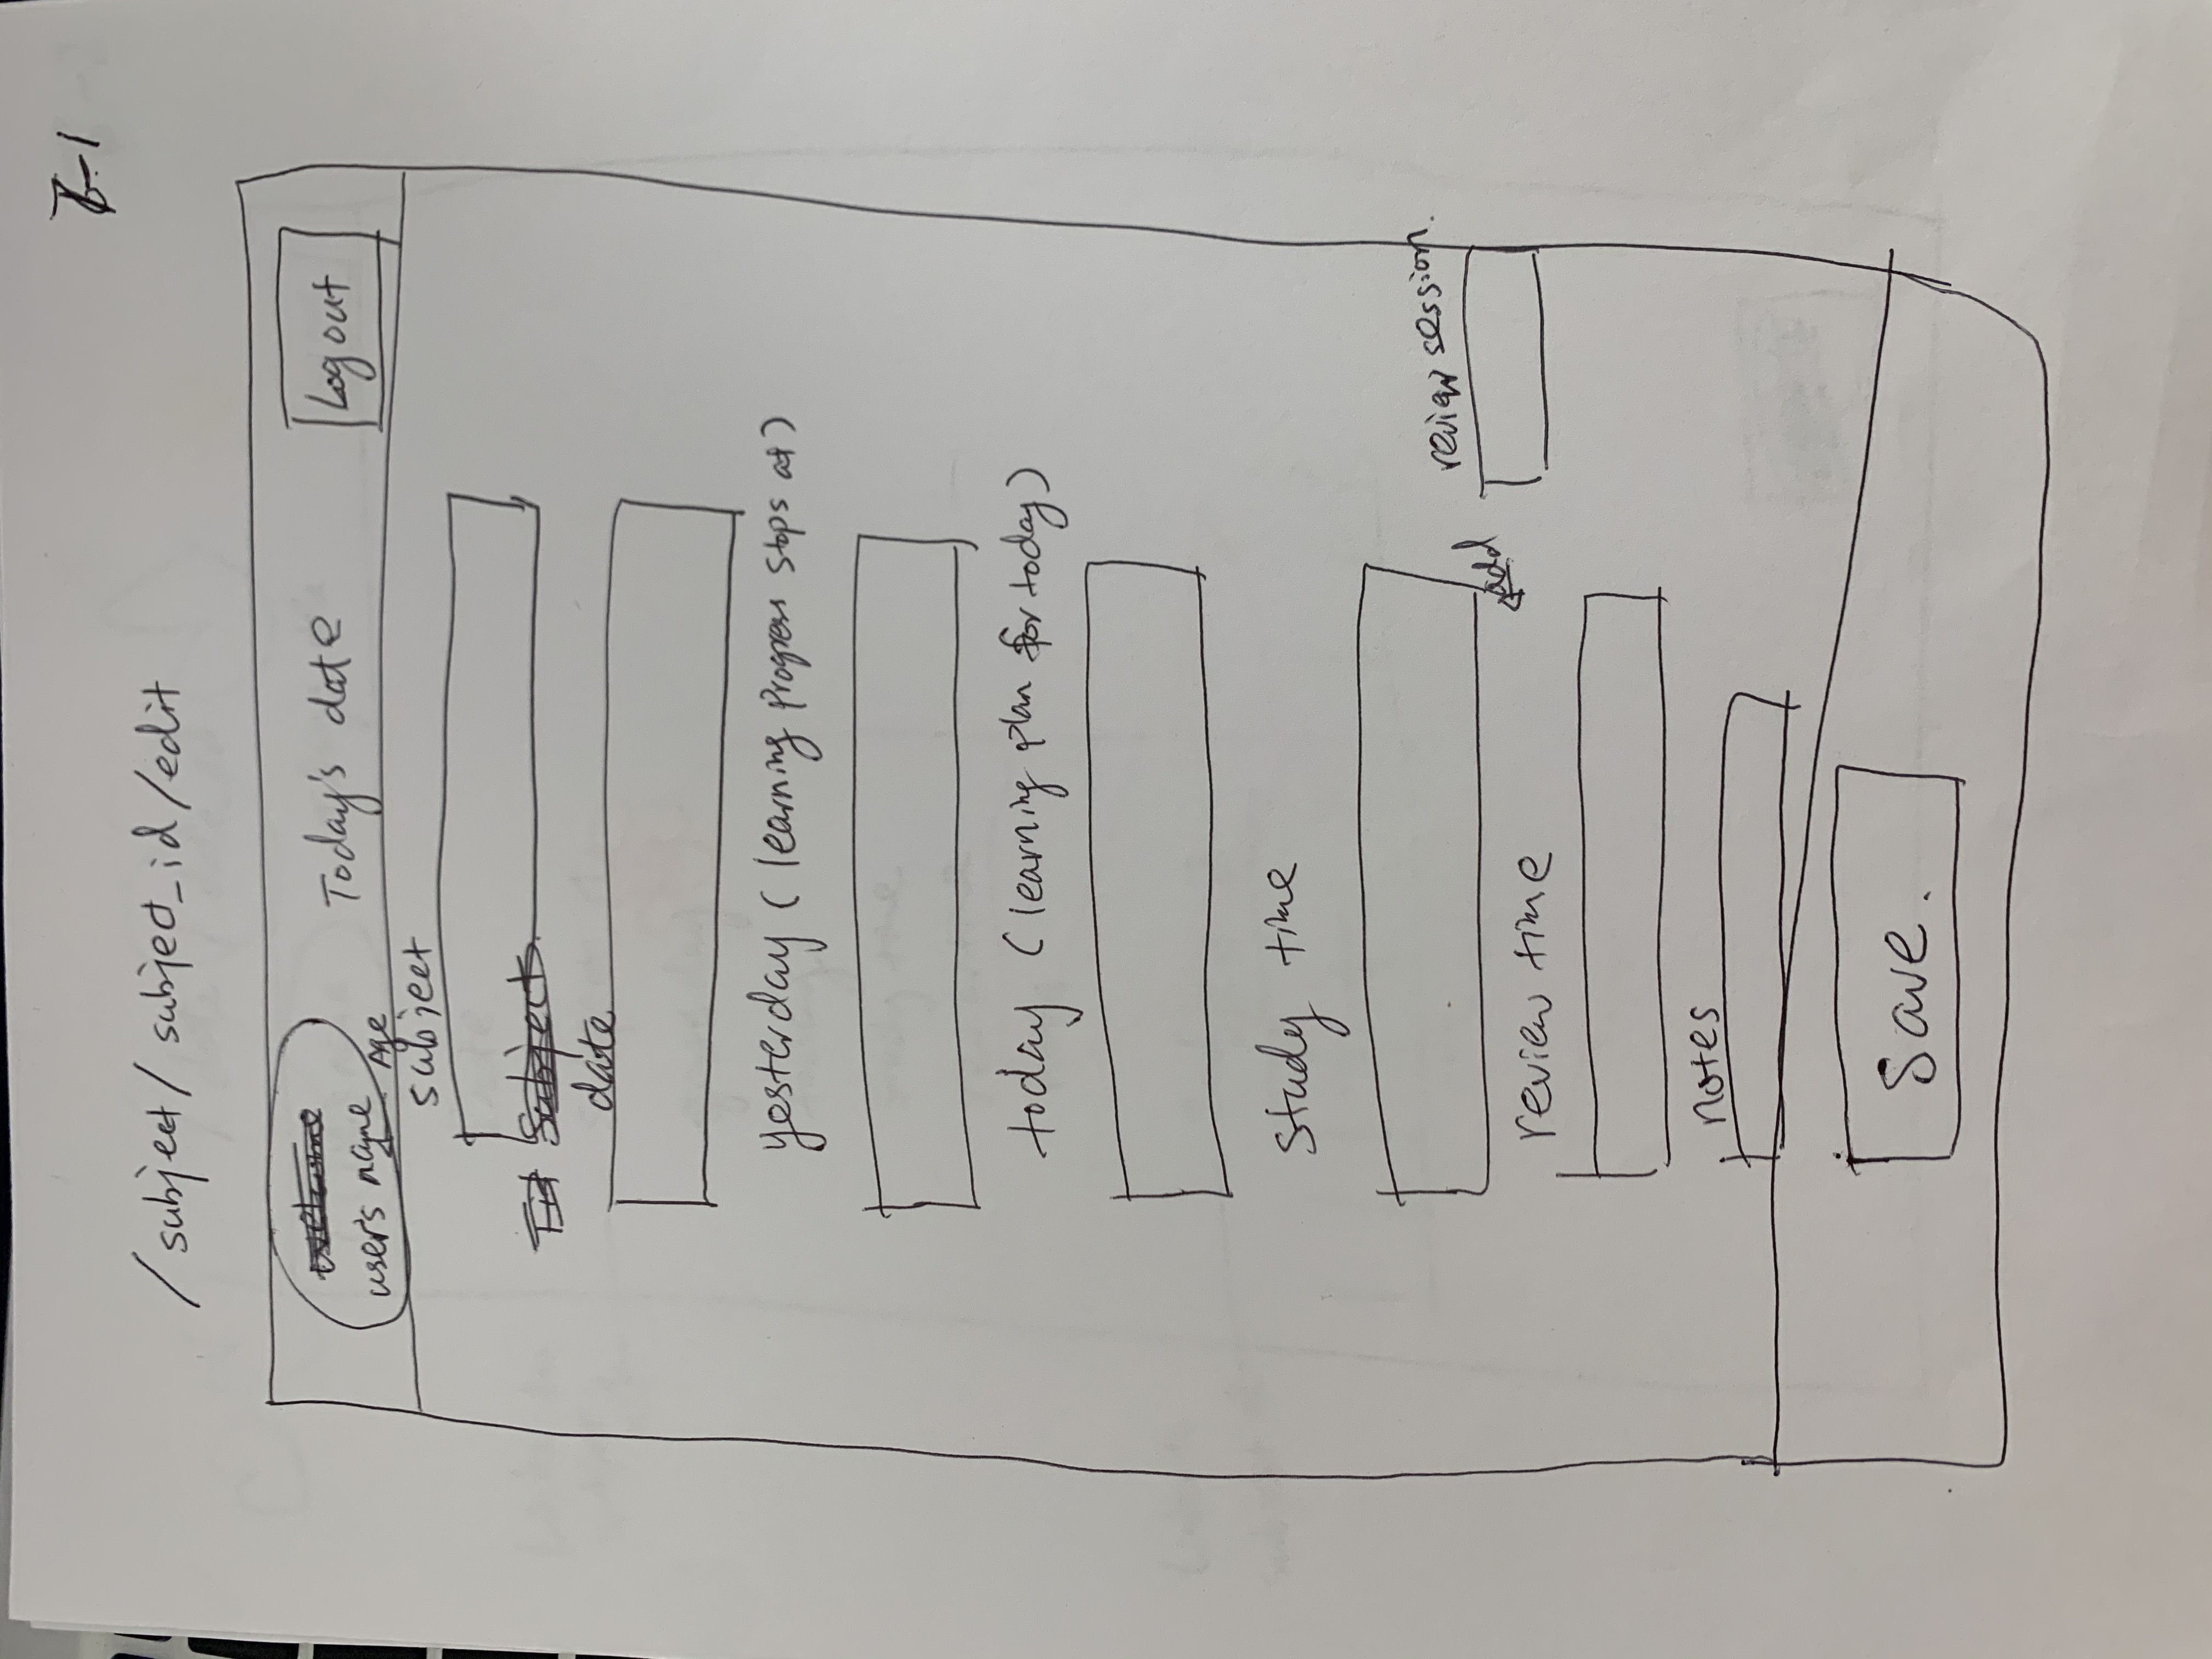 -1
/subject/ subject_id/edit
users name Age
Today's date
Log out
subject
date
yesterday ( learning progress stops at )
today ( learning plan for today )
study time
review session.
add
review time
notes
Save.